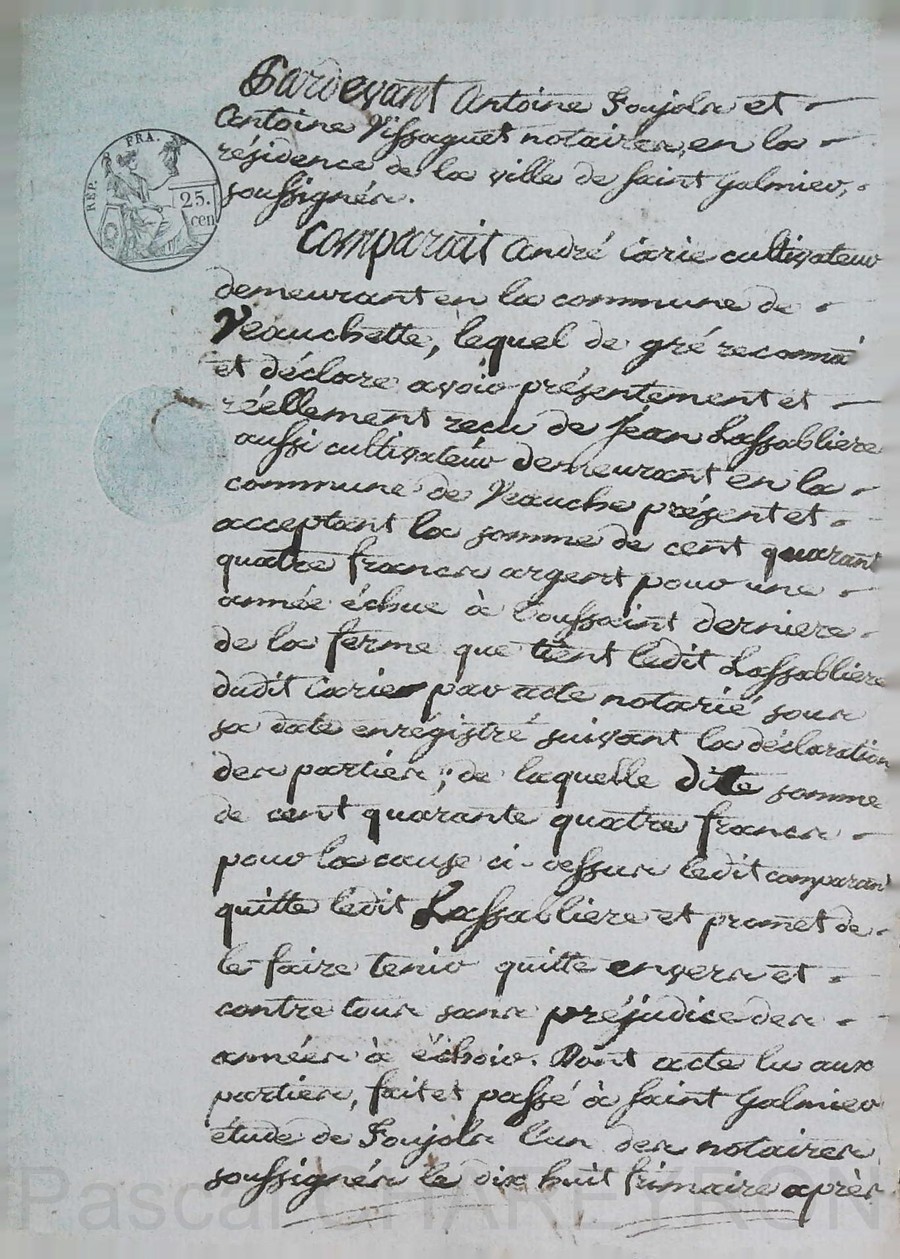 Pardevant Antoine Soujols et
Antoine Vissaguet notaires, en la
résidence de la ville de saint Galmier,
soussignés.
REP. FRA.
25.
cen
Comparait André Carie cultivateur
demeurant en la commune de
Veauchette, lequel de gré reconnai
et déclare avoir présentement et
réellement reçu de jéan Lassabliere
aussi cultivatéur demeurant en la
commune de Veauche présent et
acceptant la somme de cent quarant
quatre francs argent pour une
année échue à toussaint derniere
de la ferme que tient ledit Lassabliere
dudit Carie par acte notarié sous
sa date enrégistré suivant la déclaration
des parties ; de laquelle dite somme
de cent quarante quatre francs
pour la cause ci-dessus ledit comparant
quitte ledit Lassabliere et promet de
le faire tenir quitte envers et
contre tous sans préjudice des
années à échoir. Dont acte lu aux
parties, fait et passé à saint Galmier
étude de Soujols l'un des notaires
soussignés le dix huit frimaire après
Pascal CHAREYRON